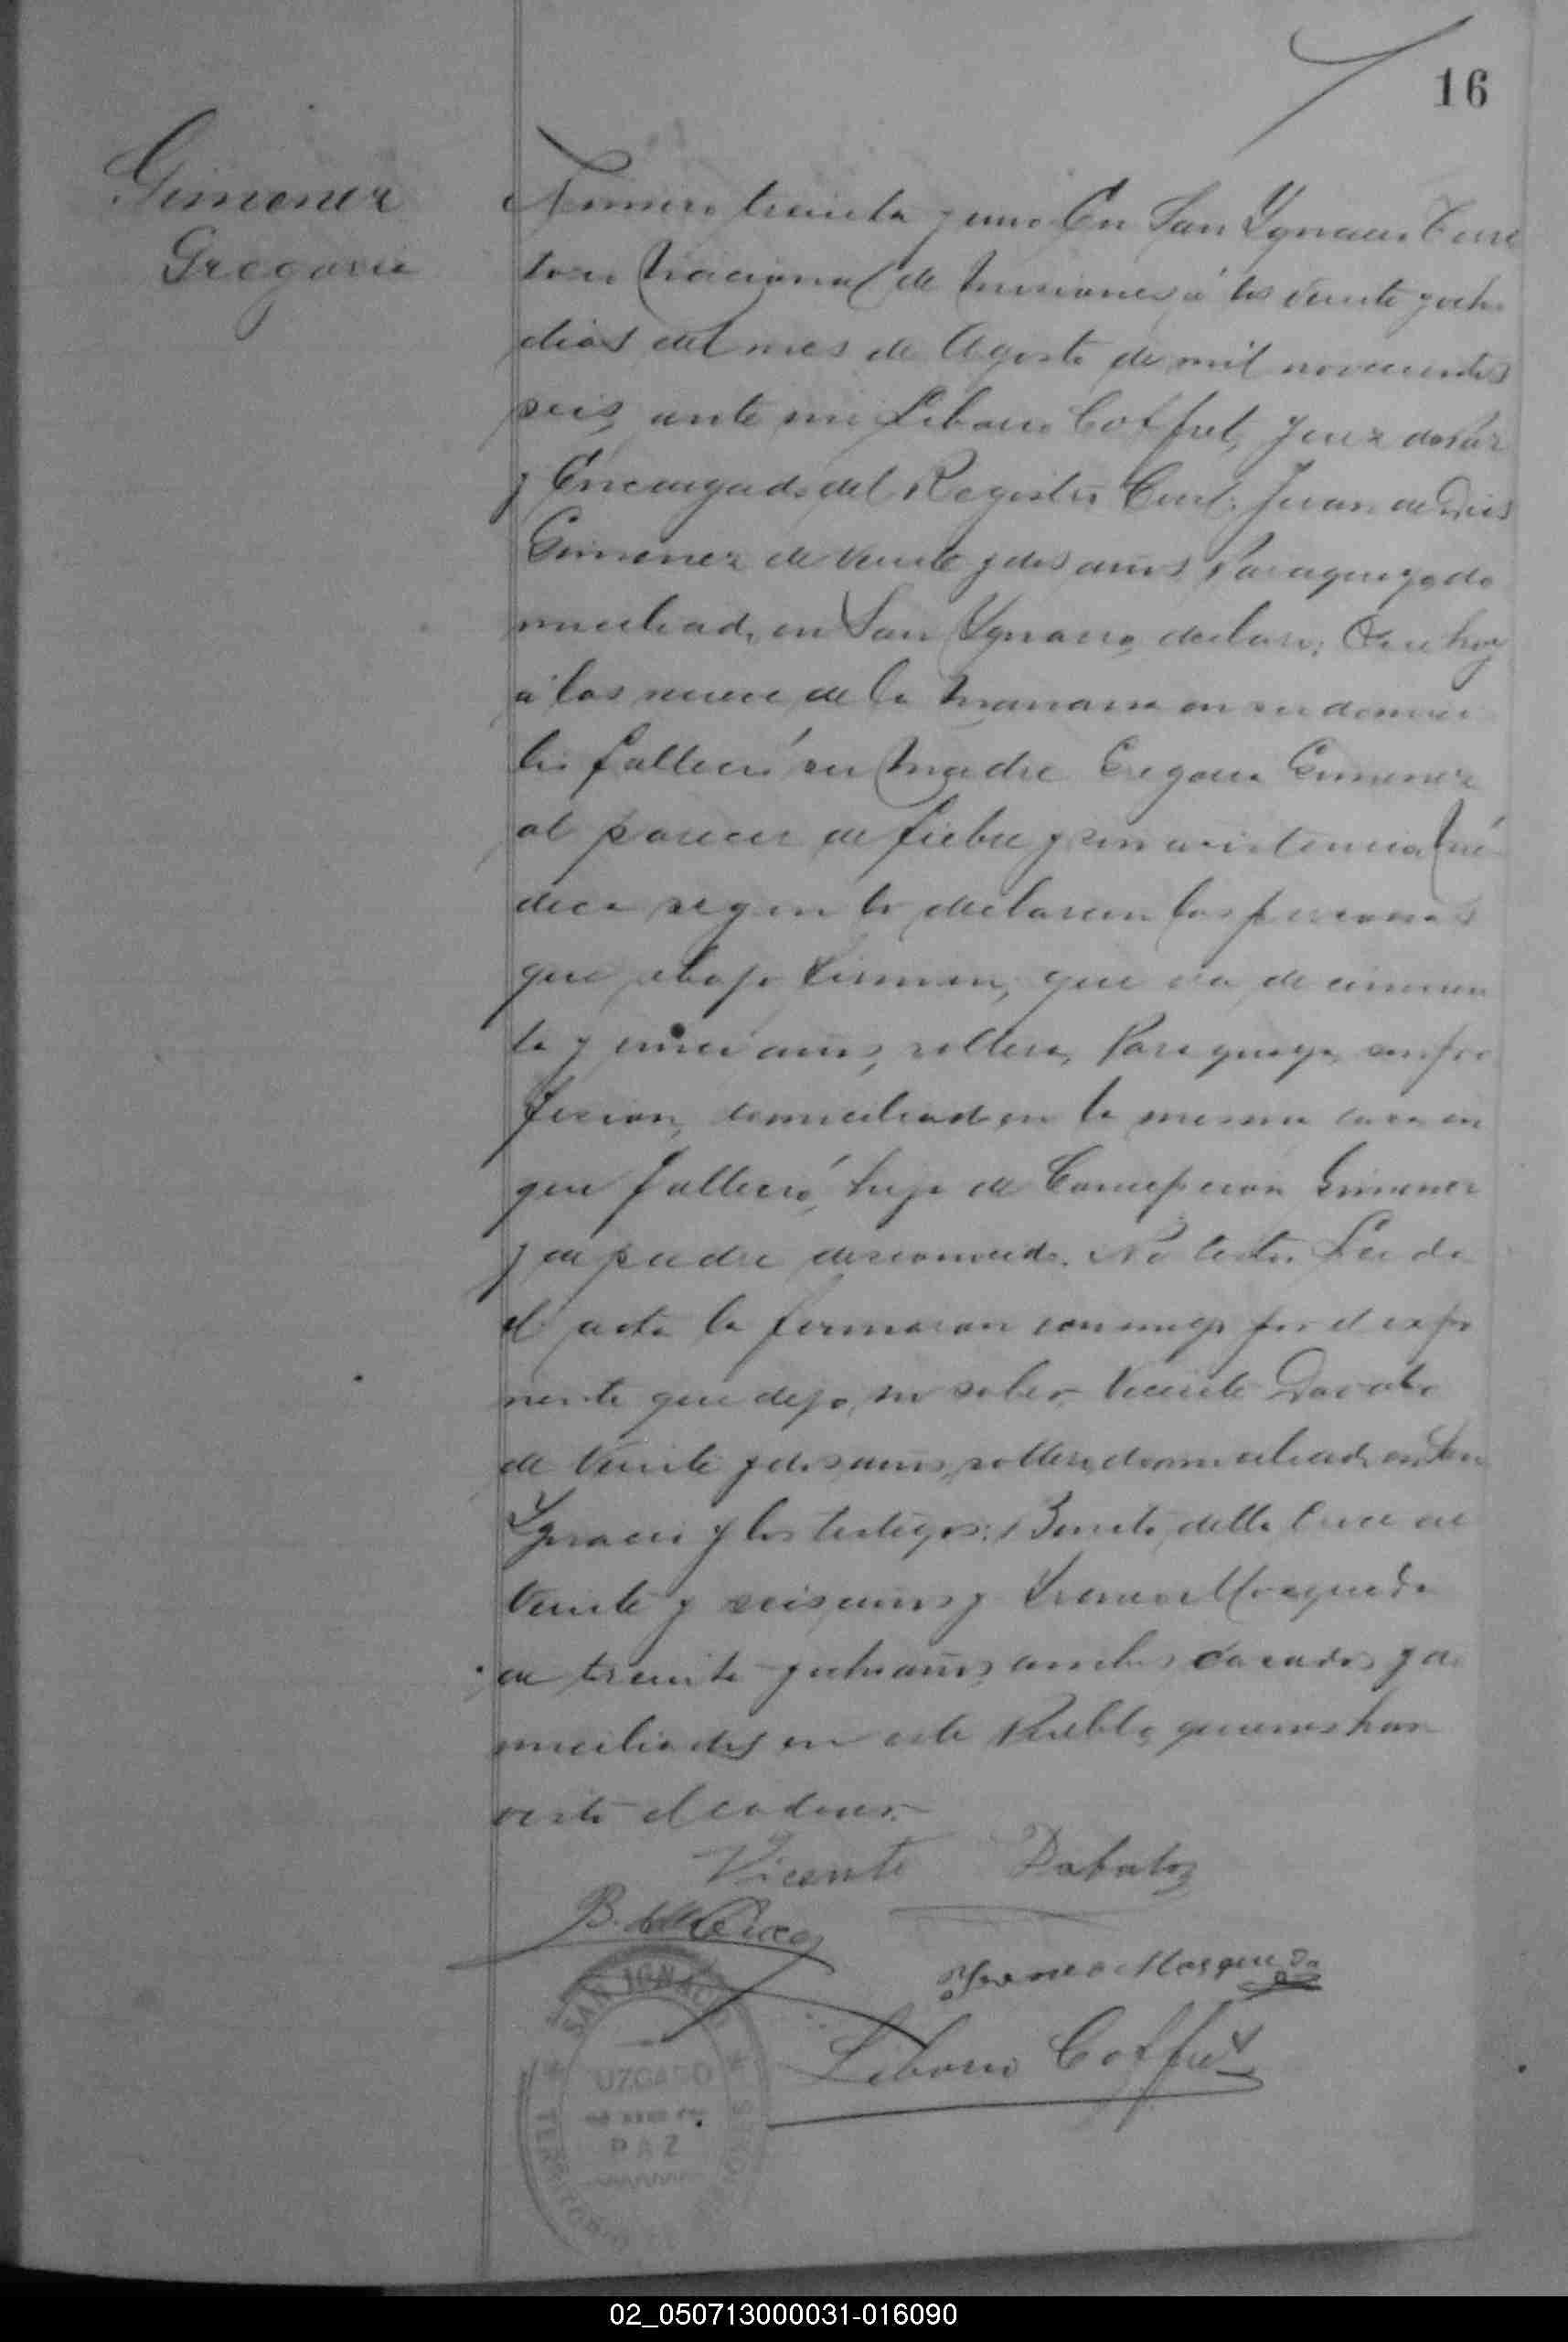 16
Gimenez
Gregoria
Numero treinta y uno En San Ygnacio Terri
torio Nacional de Misiones á los veinte y ocho
dias del mes de Agosto de mil novecientos
seis, ante mi Liborio Coffret, Juez de Paz
y Encargado del Registro Civil, Juan de Dios
Gimenez de veinte y dos años, Paraguayo do
miciliado en San Ygnacio, declaro; Que hoy
á las nueve de la mañana en su domici
lio falleció su Madre Gregoria Gimenez
al parecer de fiebre y sin asistencia mé
dica segun lo declararon las personas
que abajo firman, que era de cincuen
ta y años, soltera, Paraguaya, sin pro
fesion, domiciliada en la misma casa en
que falleció, hija de Concepcion Gimenez
y de padre desconocido. No testó. Leida
el acta la firmaron conmigo por el expo
nente que dejo no saber Vicente Davalo
de veinte y dos años, soltero, domiciliado en San
Ygnacio y los testigos: Benito della Croce de
veinte y seis años y Yreneo Mosqueda
de treinta y ocho años, ambos casados y do
miciliados en este Pueblo, quienes han
visto el cadaver.
Vicente Dabalos
B. della Croce
Yreneo Mosqueda
Liborio Coffret
SAN IGNACIO
JUZGADO
DE
PAZ
TERRITORIO DE MISIONES
02_050713000031-016090